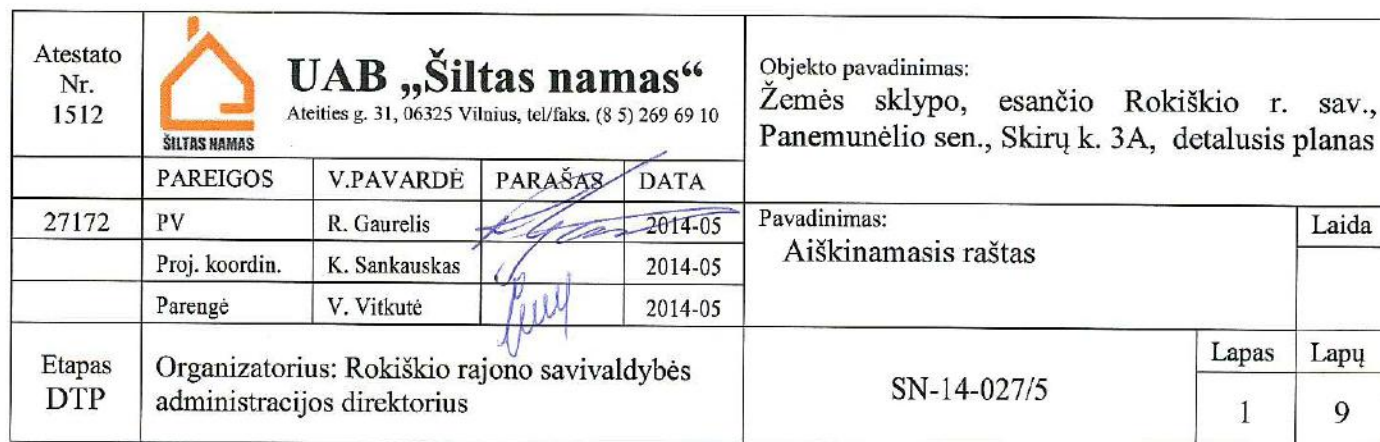 Atestato
Nr.
1512
ŠILTAS NAMAS
UAB „Šiltas namas“
Ateities g. 31, 06325 Vilnius, tel/faks. (8 5) 269 69 10
Objekto pavadinimas:
Žemės sklypo, esančio Rokiškio r. sav.,
Panemunėlio sen., Skirų k. 3A, detalusis planas
PAREIGOS V.PAVARDĖ PARAŠAS DATA
27172 PV R. Gaurelis 2014-05
Proj. koordin. K. Sankauskas 2014-05
Parengė V. Vitkutė 2014-05
Pavadinimas:
Aiškinamasis raštas
Laida
Etapas
DTP
Organizatorius: Rokiškio rajono savivaldybės
administracijos direktorius
SN-14-027/5
Lapas Lapų
1 9